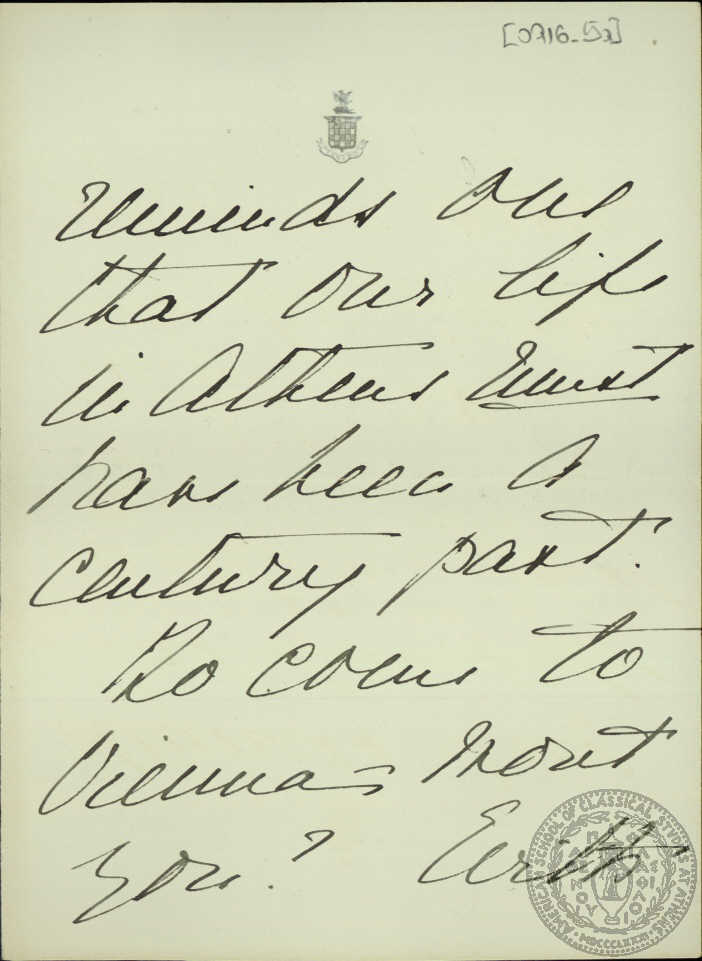 [0716_5a]
reminds one
that our life
in Athens must
have been a
century past.
Do come to
Vienna - wont
you?
AMERICAN SCHOOL OF CLASSICAL STUDIES AT ATHENS
MDCCCLXXXI